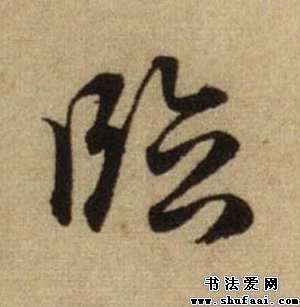 臨
书法爱网
www.shufaai.com